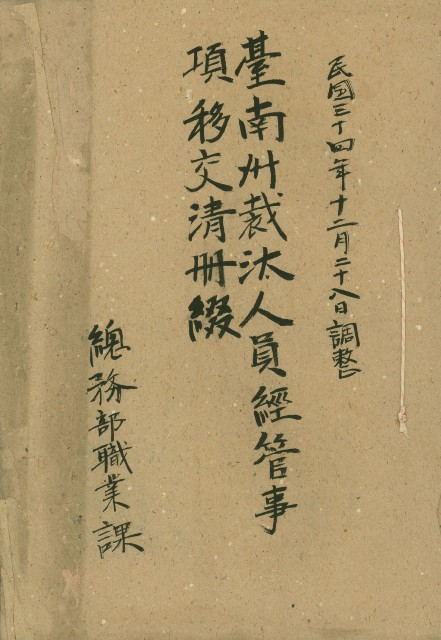 民國三十四年十二月二十八日調整
臺南州裁汰人員經管事
項移交清册綴
總務部職業課